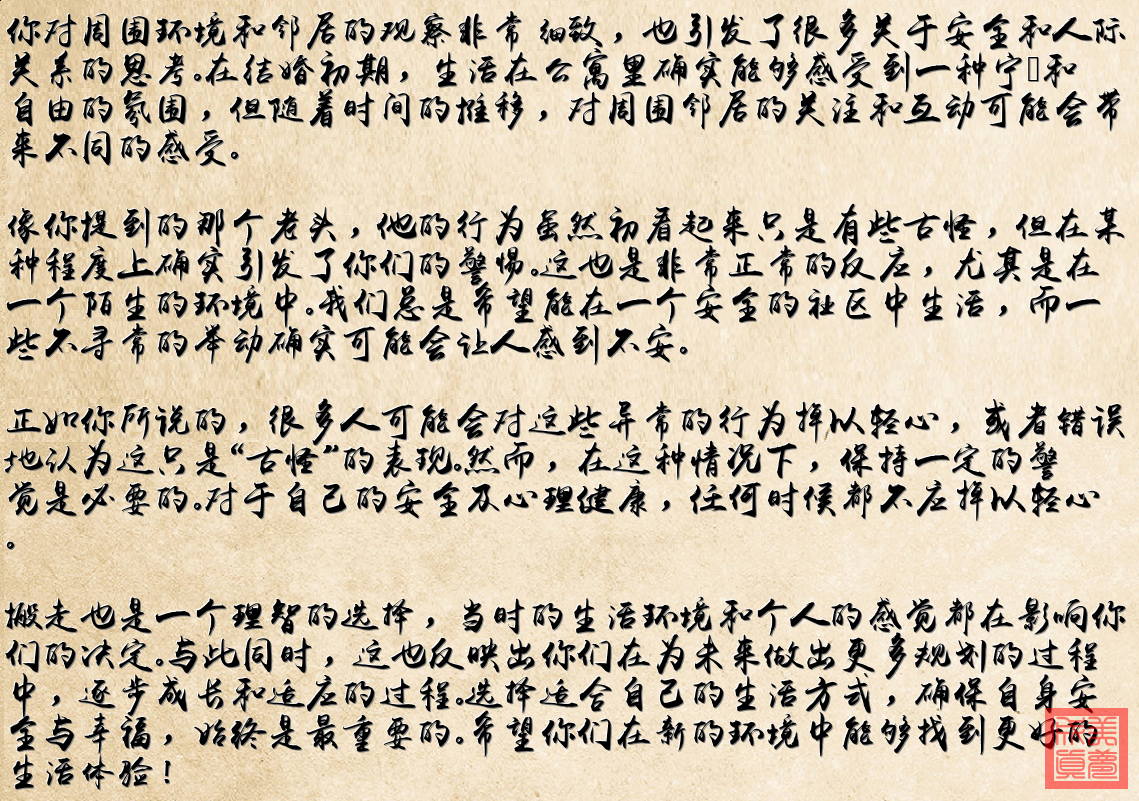 你对周围环境和邻居的观察非常细致，也引发了很多关于安全和人际
关系的思考。在结婚初期，生活在公寓里确实能够感受到一种宁和
自由的氛围，但随着时间的推移，对周围邻居的关注和互动可能会带
来不同的感受。
像你提到的那个老头，他的行为虽然初看起来只是有些古怪，但在某
种程度上确实引发了你们的警惕。这也是非常正常的反应，尤其是在
一个陌生的环境中。我们总是希望能在一个安全的社区中生活，而一
些不寻常的举动确实可能会让人感到不安。
正如你所说的，很多人可能会对这些异常的行为掉以轻心，或者错误
地认为这只是“古怪”的表现。然而，在这种情况下，保持一定的警
觉是必要的。对于自己的安全及心理健康，任何时候都不应掉以轻心
。
搬走也是一个理智的选择，当时的生活环境和个人的感觉都在影响你
们的决定。与此同时，这也反映出你们在为未来做出更多规划的过程
中，逐步成长和适应的过程。选择适合自己的生活方式，确保自身安
全与幸福，始终是最重要的。希望你们在新的环境中能够找到更好的
生活体验！